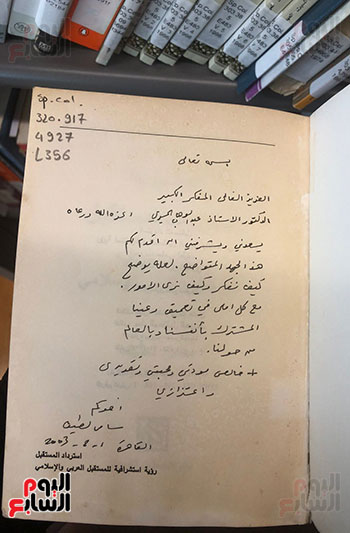 اليوم السابع
Sp. Col.
320.917
4927
L356
بسمه تعالى
العزيز الغالي المفكر الكبير
الدكتور الاستاذ عبد الوهاب المسيري اعزه الله ورعاه
يسعدني ويشرفني ان اقدم لكم
هذا الجهد المتواضع. لعله يوضح
كيف نفكر وكيف نرى الامور.
مع كل املي في تعميق وعينا
المشترك بأنفسنا وبالعالم
من حولنا.
+ خالص مودتي ومحبتي وتقديري
واعتزازي
اخوكم
القاهرة
2003
استرداد المستقبل
رؤية استشرافية للمستقبل العربي والإسلامي
اليوم السابع
اليوم السابع